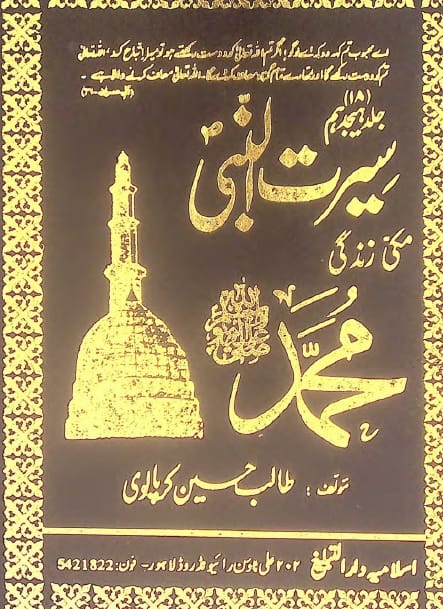 اے محبوب تم کہہ دو کہ لوگو! اگر تم اللہ تعالیٰ کو دوست رکھتے ہو تو میرا اتباع کرو، اللہ تعالیٰ
تم کو دوست رکھے گا اور تمہارے تمام گناہ معاف کر دے گا۔ اللہ تعالیٰ معاف کرنے والا ہے۔
جلد ہیجدہم (۱۸)
سیرت النبیؐ
مکی زندگی
محمدؐ
مؤلف : طالب حسین کرپالوی
اسلامیہ دار التبلیغ ۲۰۲ علی ٹاؤن رائیونڈ روڈ لاہور۔ فون: 5421822